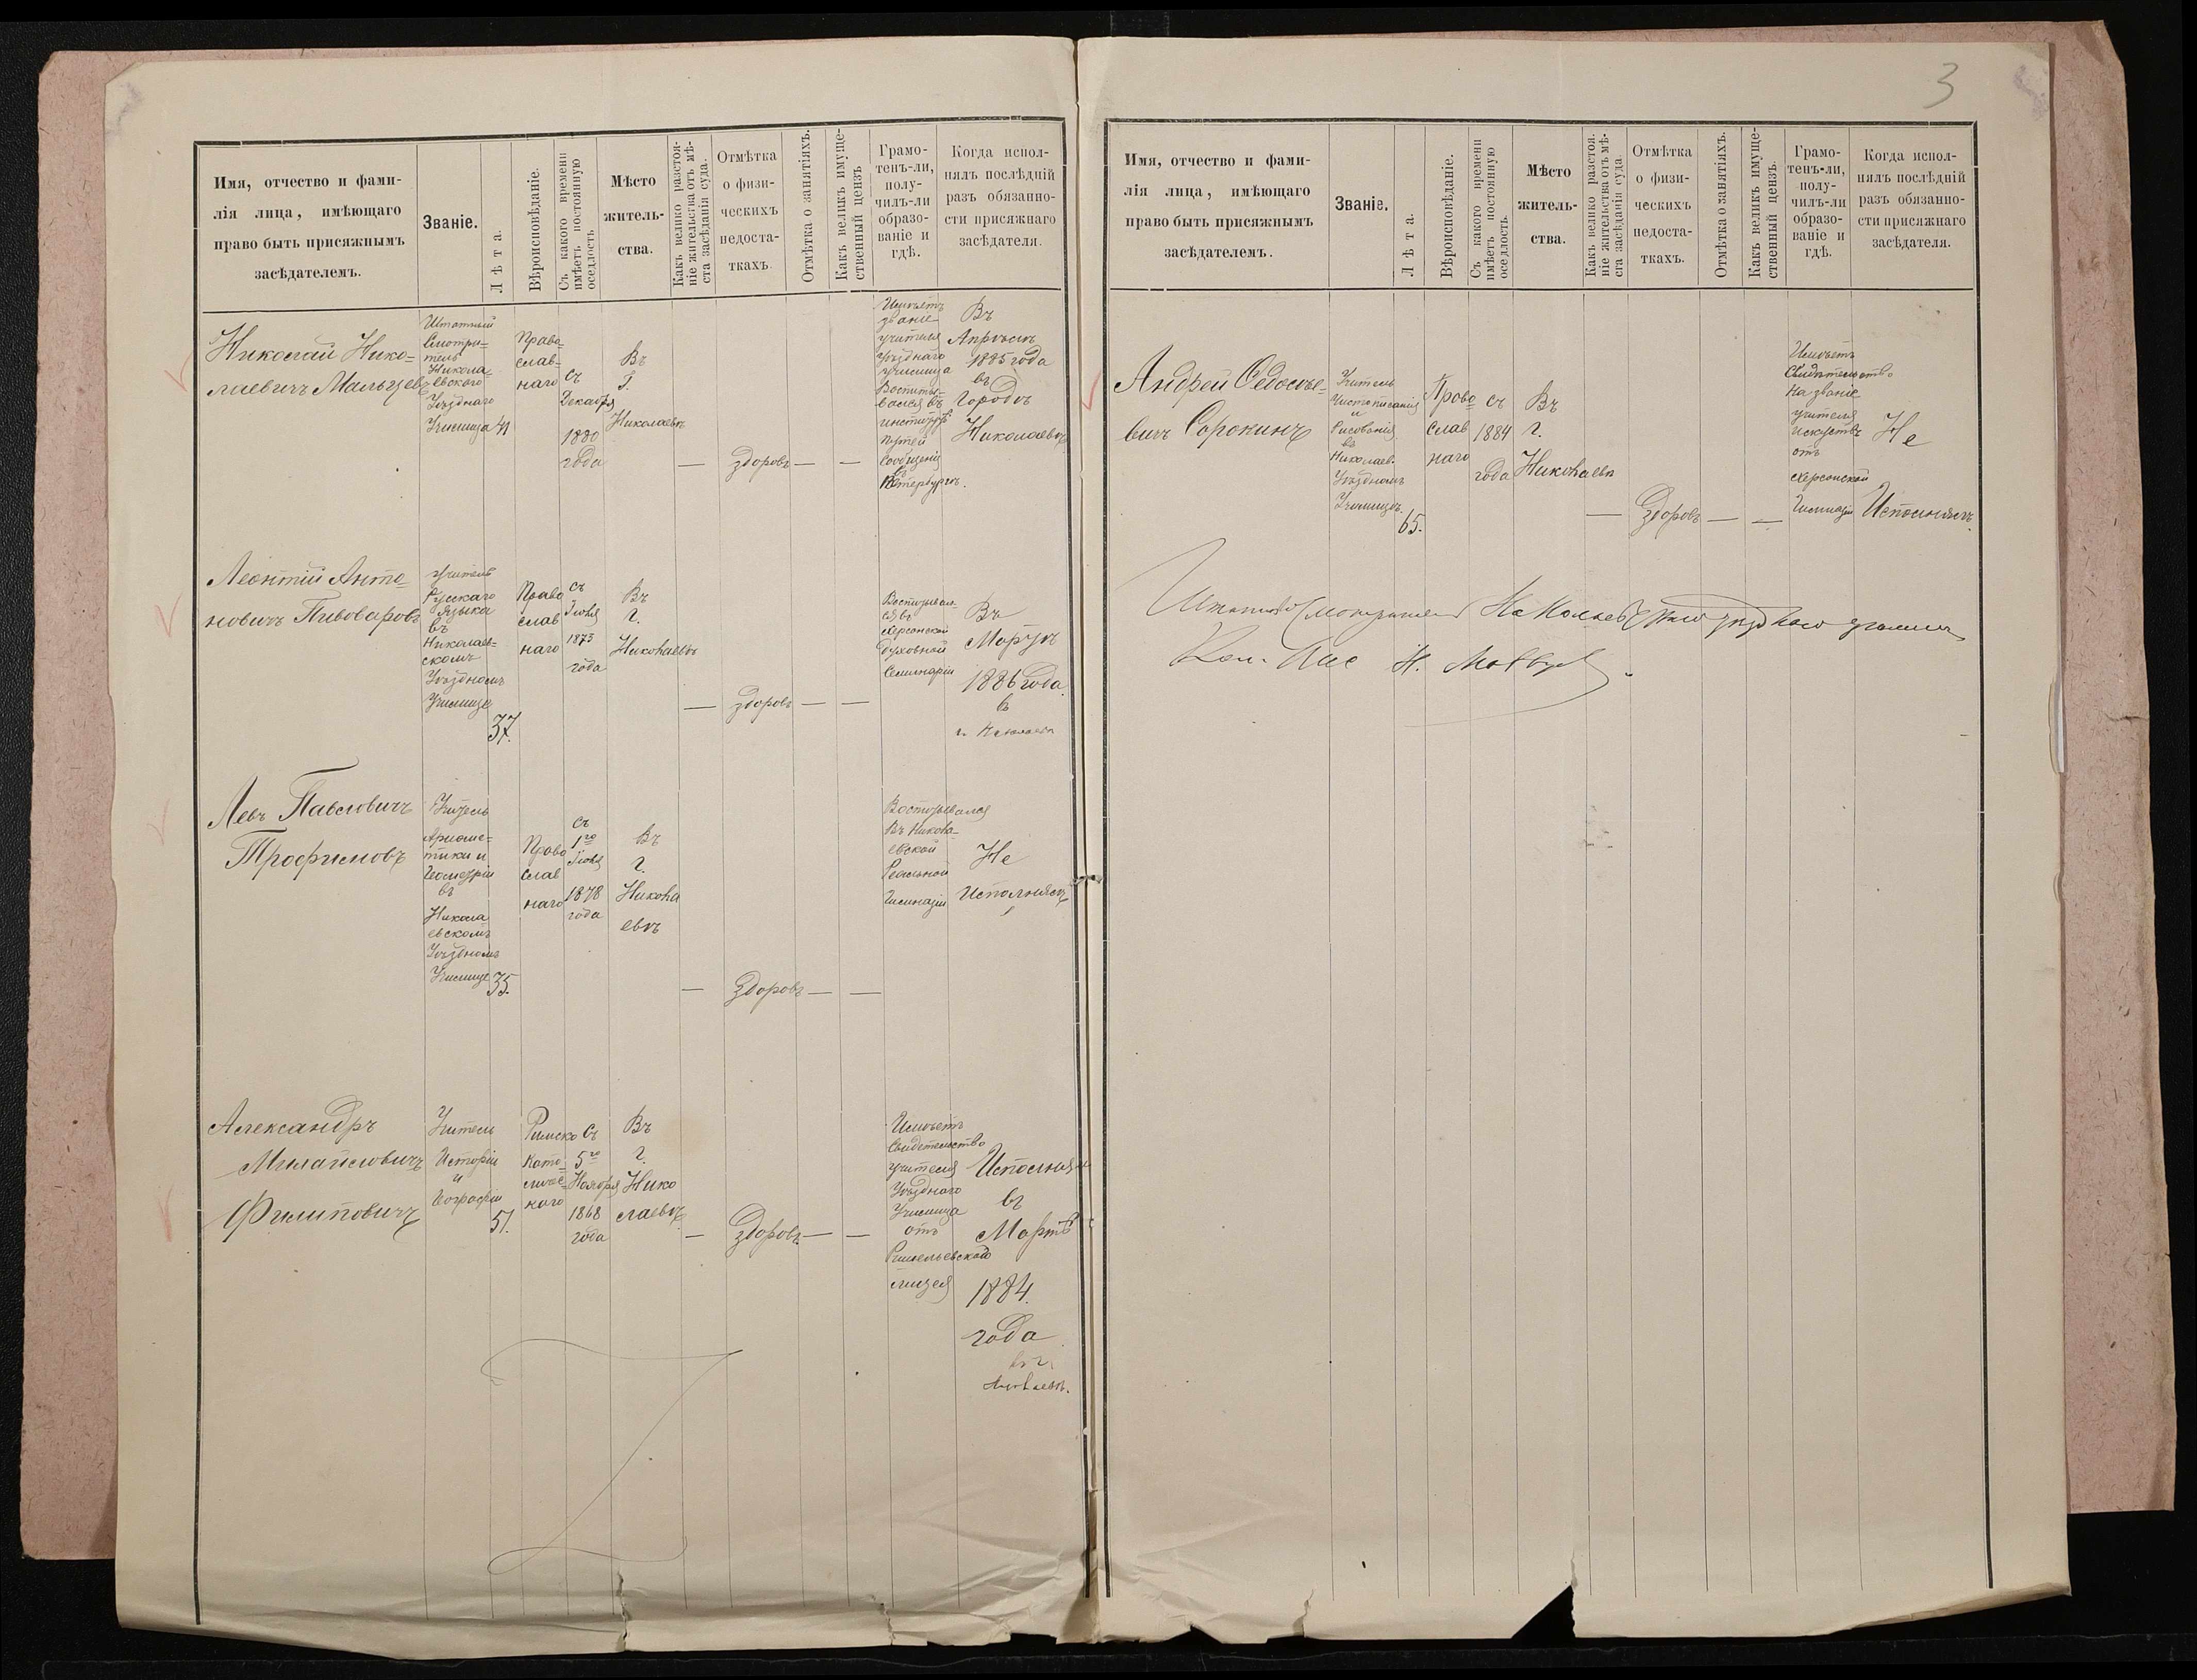 3
Имя, отчество и фами-
лія лица, имѣющаго
право быть присяжнымъ
засѣдателемъ.
Званіе.
Лѣта.
Вѣроисповѣданіе.
Съ какого времени
имѣетъ постоянную
оседлость
Мѣсто
житель-
ства.
Какъ велико разстоя-
ніе жительства отъ мѣ-
ста засѣданія суда.
Отмѣтка
о физи-
ческихъ
недоста-
ткахъ.
Отмѣтка о занятіяхъ.
Какъ великъ имуще-
ственный цензъ
Грамо-
тенъ-ли,
полу-
чилъ-ли
образо-
ваніе и
гдѣ.
Когда испол-
нялъ послѣдній
разъ обязанно-
сти присяжнаго
засѣдателя.
Николай Нико-
лаевичъ Мальцевъ
Штатный
Смотри-
тель
Никола-
евскаго
Уѣзднаго
Училища
41
Право-
слав-
наго
Съ
Декабря
1880
года
Въ
Г.
Николаевѣ
—
здоровъ
—
—
Имѣетъ
званіе
учителя
уѣзднаго
училища
Воспиты-
вался въ
институтѣ
путей
Сообщенія
въ
Петербургѣ.
Въ
Апрѣлѣ
1885 года
въ
Городѣ
Николаевѣ
Леонтій Анто-
новичъ Пивоваровъ
Учитель
Русскаго
языка
въ
Николаев-
скомъ
Уѣздномъ
Училище
37.
Право
слав
наго
съ
Іюня
1873
года
Въ
г.
Николаевѣ
—
здоровъ
—
—
Воспитывал-
ся въ
Херсонской
духовной
Семинаріи
Въ
Мартѣ
1886 года.
въ
г. Николаевѣ
Левъ Павловичъ
Трофимовъ
Учитель
Ариѳме-
тики и
Геометріи
въ
Никола
евскомъ
Уѣздномъ
Училище
35.
Право
слав
наго
съ
1го
Іюня
1878
года
Въ
г.
Никола
евѣ
—
Здоровъ
—
—
Воспитывался
Въ Никола-
евской
Реальной
Гимназіи
Не
Исполнялъ
Александръ
Михайловичъ
Филиповичъ
Учитель
Исторіи
и
Географіи
51.
Римско
Като-
личес-
каго
Съ
5го
Ноября
1868
года
Въ
г.
Нико
лаевѣ
—
Здоровъ
—
—
Имѣетъ
Свидетельство
учителя
Уѣзднаго
Училища
отъ
Ришельевскаго
лицея
Исполнялъ
въ
Мартѣ
1884.
года
въ г.
Николаевѣ.
Имя, отчество и фами-
лія лица, имѣющаго
право быть присяжнымъ
засѣдателемъ.
Званіе.
Лѣта.
Вѣроисповѣданіе.
Съ какого времени
имѣетъ постоянную
оседлость.
Мѣсто
житель-
ства.
Какъ велико разстоя.
ніе жительства отъ мѣ-
ста засѣданія суда.
Отмѣтка
о физи-
ческихъ
недоста-
ткахъ.
Отмѣтка о занятіяхъ.
Какъ великъ имуще-
ственный цензъ.
Грамо-
тенъ-ли,
полу-
чилъ-ли
образо-
ваніе и
гдѣ.
Когда испол-
нялъ послѣдній
разъ обязанно-
сти присяжнаго
засѣдателя.
Андрей Ѳедосѣе-
вичъ Сорокинъ
Учитель
Чистописанія
и
Рисованія
въ
Николаев.
Уѣздномъ
Училищѣ.
65.
Право
слав
наго
съ
1884
года
Въ
г.
Николаевѣ
—
Здоровъ
—
—
Имѣетъ
Свидѣтельство
На званіе
учителя
искуствъ
отъ
Херсонской
Гимназіи
Не
Исполнялъ.
Штатный Смотритель Николаевскаго уѣзднаго училища
Кол. Асс Н. Мальцев.